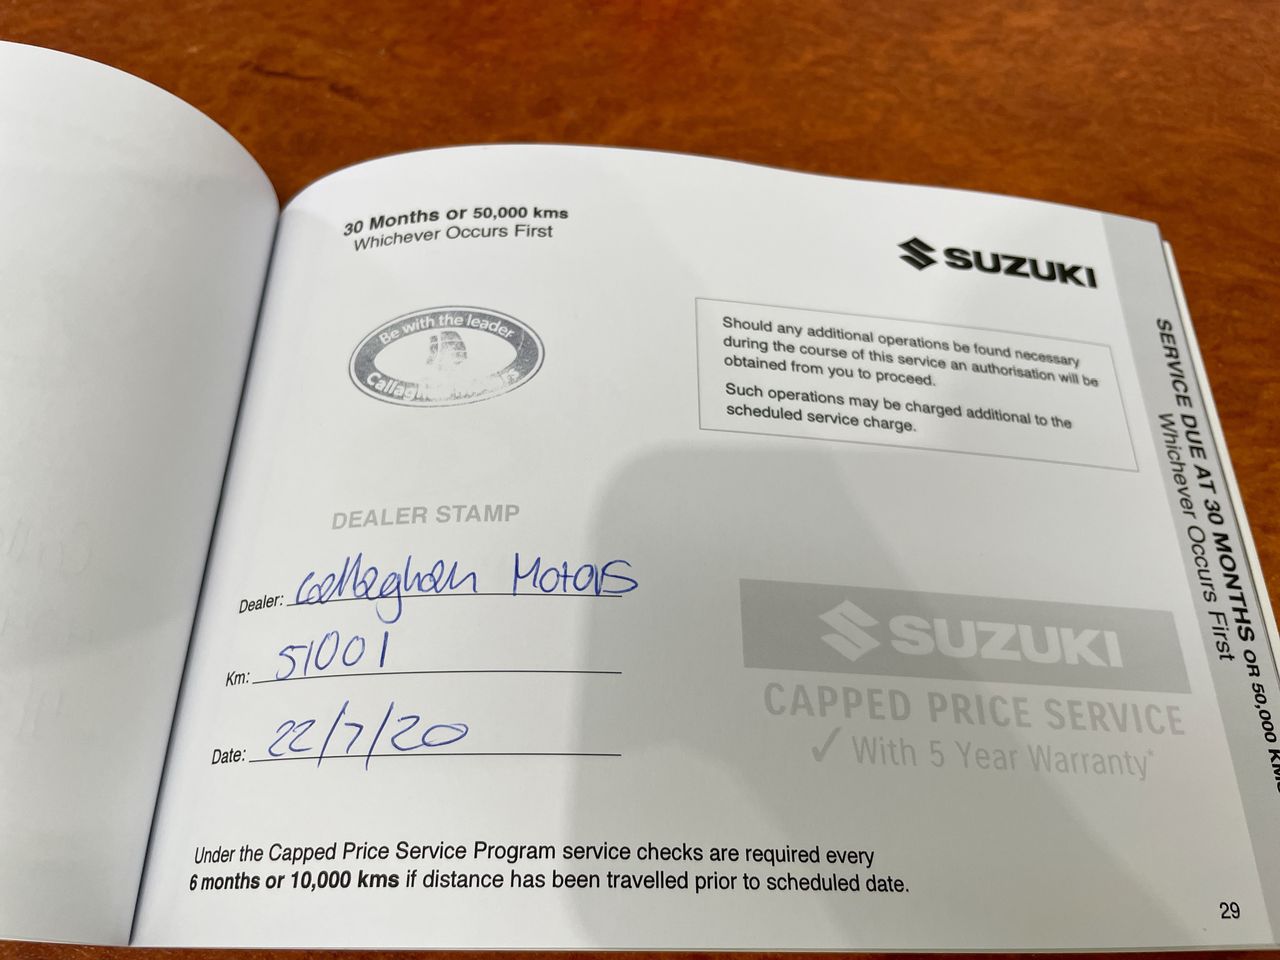 30 Months or 50,000 kms
Whichever Occurs First
SUZUKI
Be with the leader
Should any additional operations be found necessary
during the course of this service an authorisation will be
obtained from you to proceed.
Such operations may be charged additional to the
scheduled service charge.
DEALER STAMP
Dealer: Callaghan Motors
Km: 51001
Date: 22/7/20
SUZUKI
CAPPED PRICE SERVICE
✓ With 5 Year Warranty*
Under the Capped Price Service Program service checks are required every
6 months or 10,000 kms if distance has been travelled prior to scheduled date.
SERVICE DUE AT 30 MONTHS OR 50,000 KMS
Whichever Occurs First
29